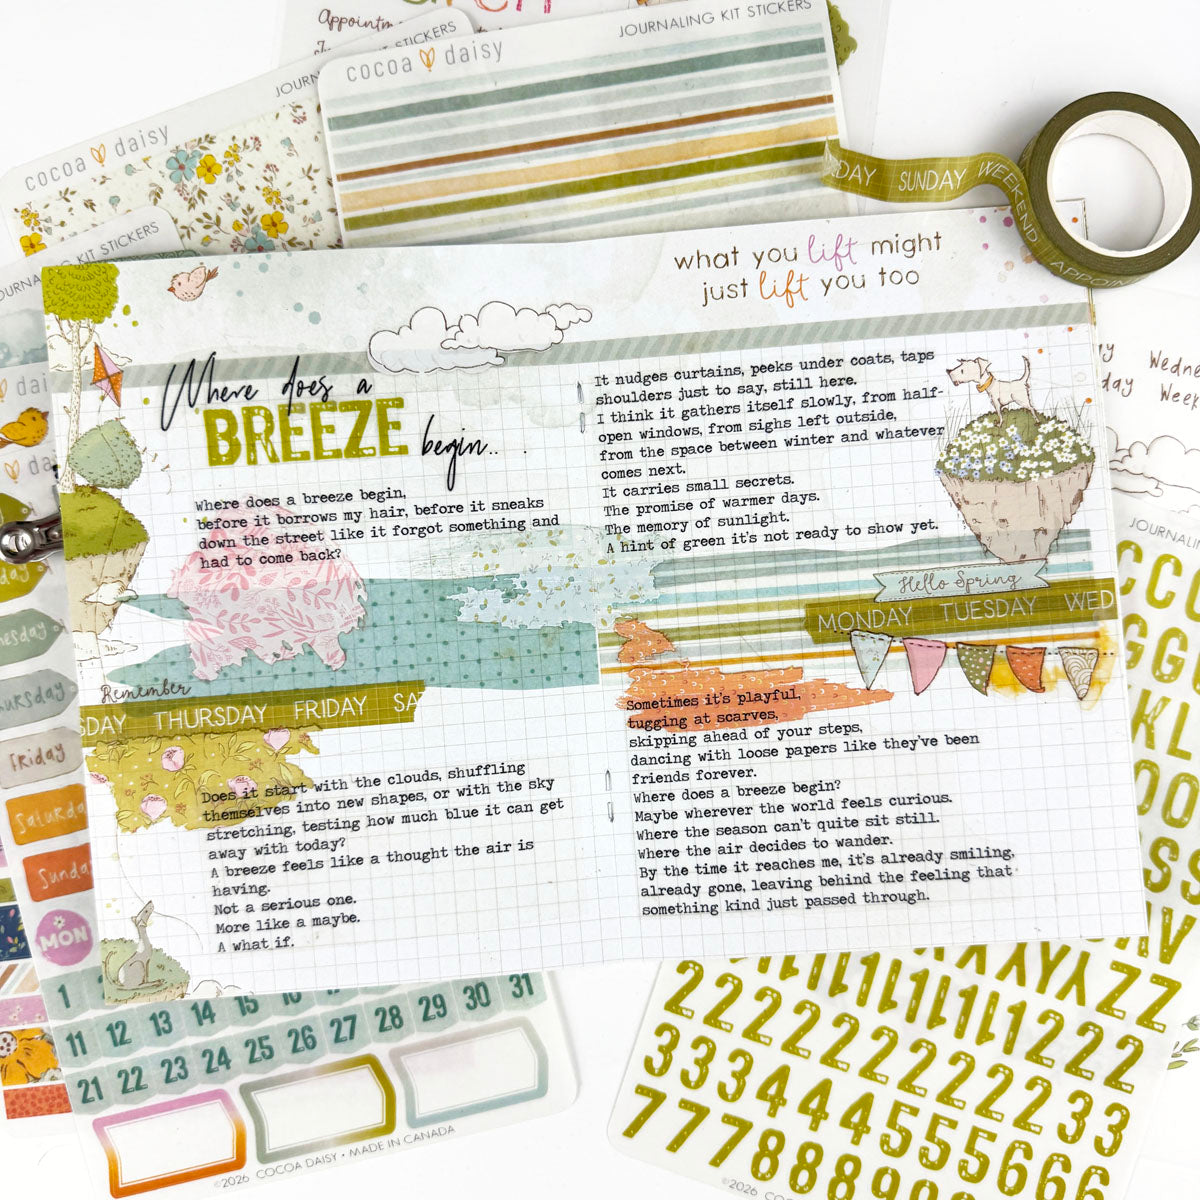 Appointm
JOURNALING KIT STICKERS
STICKERS
JOURN
cocoa daisy
cocoa daisy
JOURNALING KIT STICKERS
DAY SUNDAY WEEKEND APPOIN
what you lift might
just lift you too
Where does a
BREEZE begin...
Where does a breeze begin,
before it borrows my hair, before it sneaks
down the street like it forgot something and
had to come back?
Remember
SDAY THURSDAY FRIDAY SA
Does it start with the clouds, shuffling
themselves into new shapes, or with the sky
stretching, testing how much blue it can get
away with today?
A breeze feels like a thought the air is
having.
Not a serious one.
More like a maybe.
A what if.
It nudges curtains, peeks under coats, taps
shoulders just to say, still here.
I think it gathers itself slowly, from half-
open windows, from sighs left outside,
from the space between winter and whatever
comes next.
It carries small secrets.
The promise of warmer days.
The memory of sunlight.
A hint of green it's not ready to show yet.
Hello Spring
MONDAY TUESDAY WED
Sometimes it's playful,
tugging at scarves,
skipping ahead of your steps,
dancing with loose papers like they've been
friends forever.
Where does a breeze begin?
Maybe wherever the world feels curious.
Where the season can't quite sit still.
Where the air decides to wander.
By the time it reaches me, it's already smiling,
already gone, leaving behind the feeling that
something kind just passed through.
Wedne
day Week
JOURNALING
dai
da
day
nesday
hursday
Friday
Saturda
Sunda
MON
1 14 15 16 30 31
11 12 13 14 25 26 27 28 29 30 31
21 22 23 24 25 26 27
©2026 COCOA DAISY • MADE IN CANADA
CCC
GGG
KL
OO
SS
YYYZZZ
1111111222
222222222233
33344445556666
777888
©2026 COCO